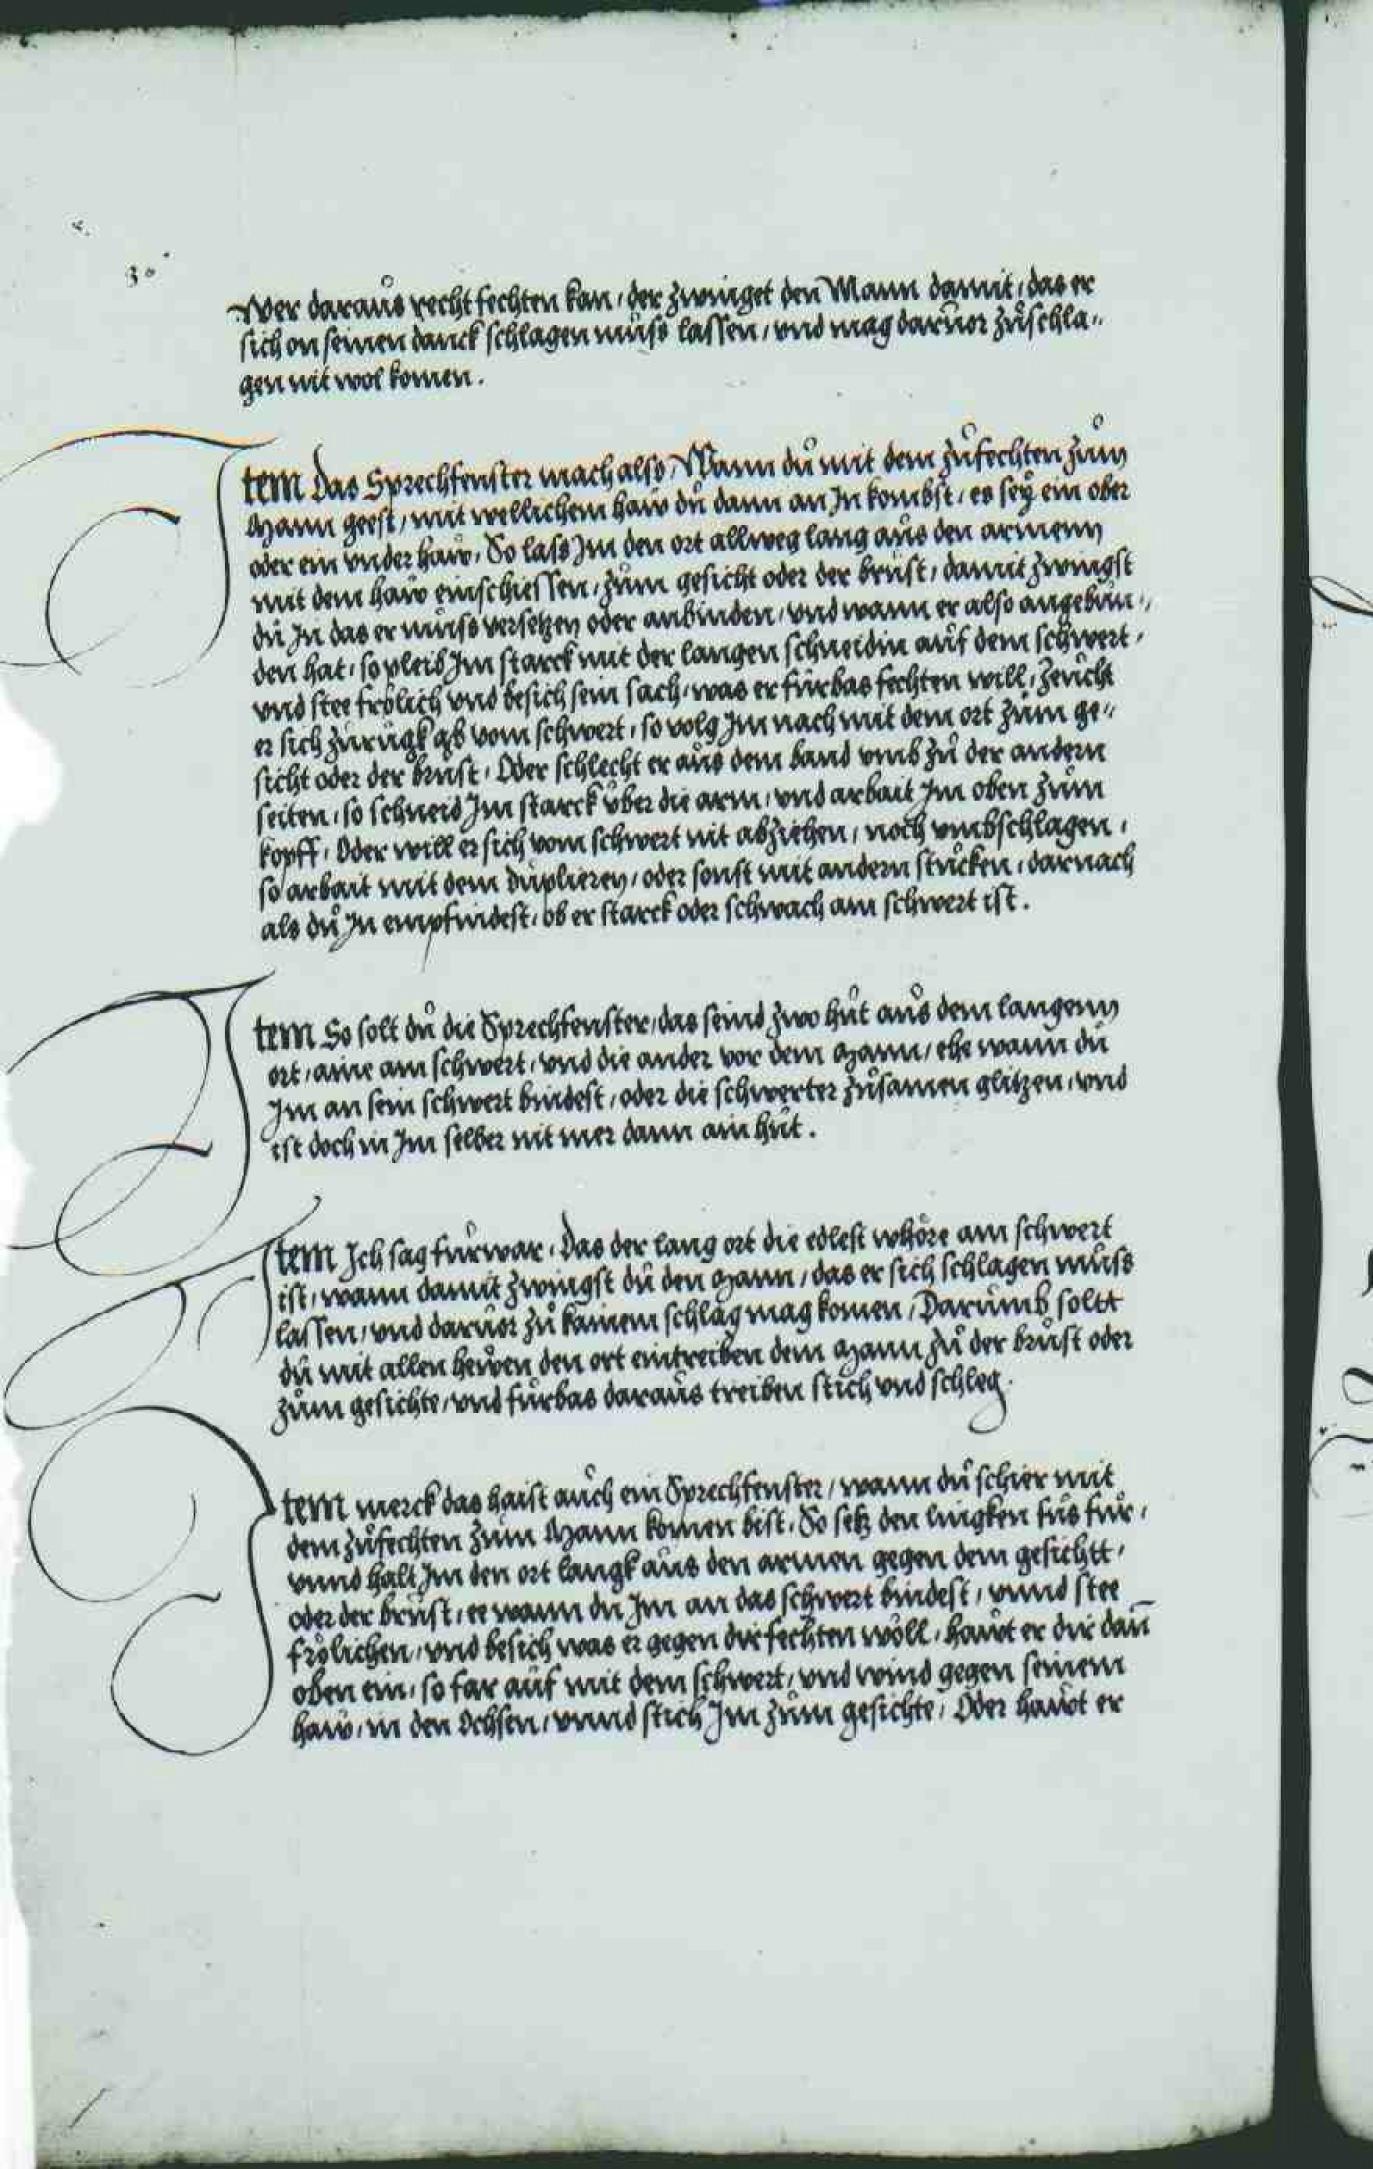 30
Wer daraus recht fechten kan / der zwinget den Mann damit / das er
sich on seinen danck schlagen můss lassen / vnd mag daruor zůschla„
gen nit wol komen .
Item Das Sprechfenster mach also / Wann du mit dem zůfechten zům
Mann geest / mit wellichem haw dů dann an In kombst / es seÿ ein ober
oder ein vnder haw / So lass Im den ort allweg lang aůs den armenn
mit dem haw einschiessen / zům gesicht oder der brůst / damit zwingst
dů In das er můss versetzen oder anbinden / vnd wann er also angebůn„
den hat / so pleib Im starck mit der langen schneidin aůf dem schwert /
vnd stee frölich vnd besich sein sach / was er fůrbas fechten will / Zeůcht
er sich zůrůgk ab vom schwert / so volg Im nach mit dem ort zům ge„
sicht oder der brůst / Oder schlecht er aůs dem band vmb zů der andern
seiten / so schneid Im starck ůber die arm / vnd arbait Im oben zům
kopff / Oder will er sich vom schwert nit abziehen / noch vmbschlagen /
so arbait mit dem duplieren / oder sonst mit andern stůcken / darnach
als dů In empfindest / ob er starck oder schwach am schwert ist .
Item So solt dů die Sprechfenster / das seind zwo hůt aůs dem langenn
ort / aine am schwert / vnd die ander vor dem Mann / ehe wann dů
Im an sein schwert bindest / oder die schwerter zůsamen glitzen / vnd
ist doch in Im selber nit mer dann ain hůt .
Item Ich sag fůrwar / Das der lang ort die edlest whöre am schwert
ist / wann damit zwingst dů den Mann / das er sich schlagen můss
lassen / vnd darůor zů kainem schlag mag komen / Darůmb soltt
dů mit allen hewen den ort eintreiben dem Mann zů der brůst oder
zům gesichte / vnd fůrbas daraůs treiben stich vnd schleg .
Item merck das haist aůch ein Sprechfenster / wann dů schier mit
dem zůfechten zům Mann komen bist / So setz den lingken fůs fůr /
vnnd halt Im den ort langk aůs den armen gegen dem gesichtt /
oder der brůst / ee wann du Im an das schwert bindest / vnnd stee
frölichen / vnd besich was er gegen dir fechten wöll / hawt er dir dañ
oben ein / so far aůf mit dem schwert / vnd wind gegen seinem
haw / in den Ochsen / vnnd stich Im zům gesichte / Oder hawt er